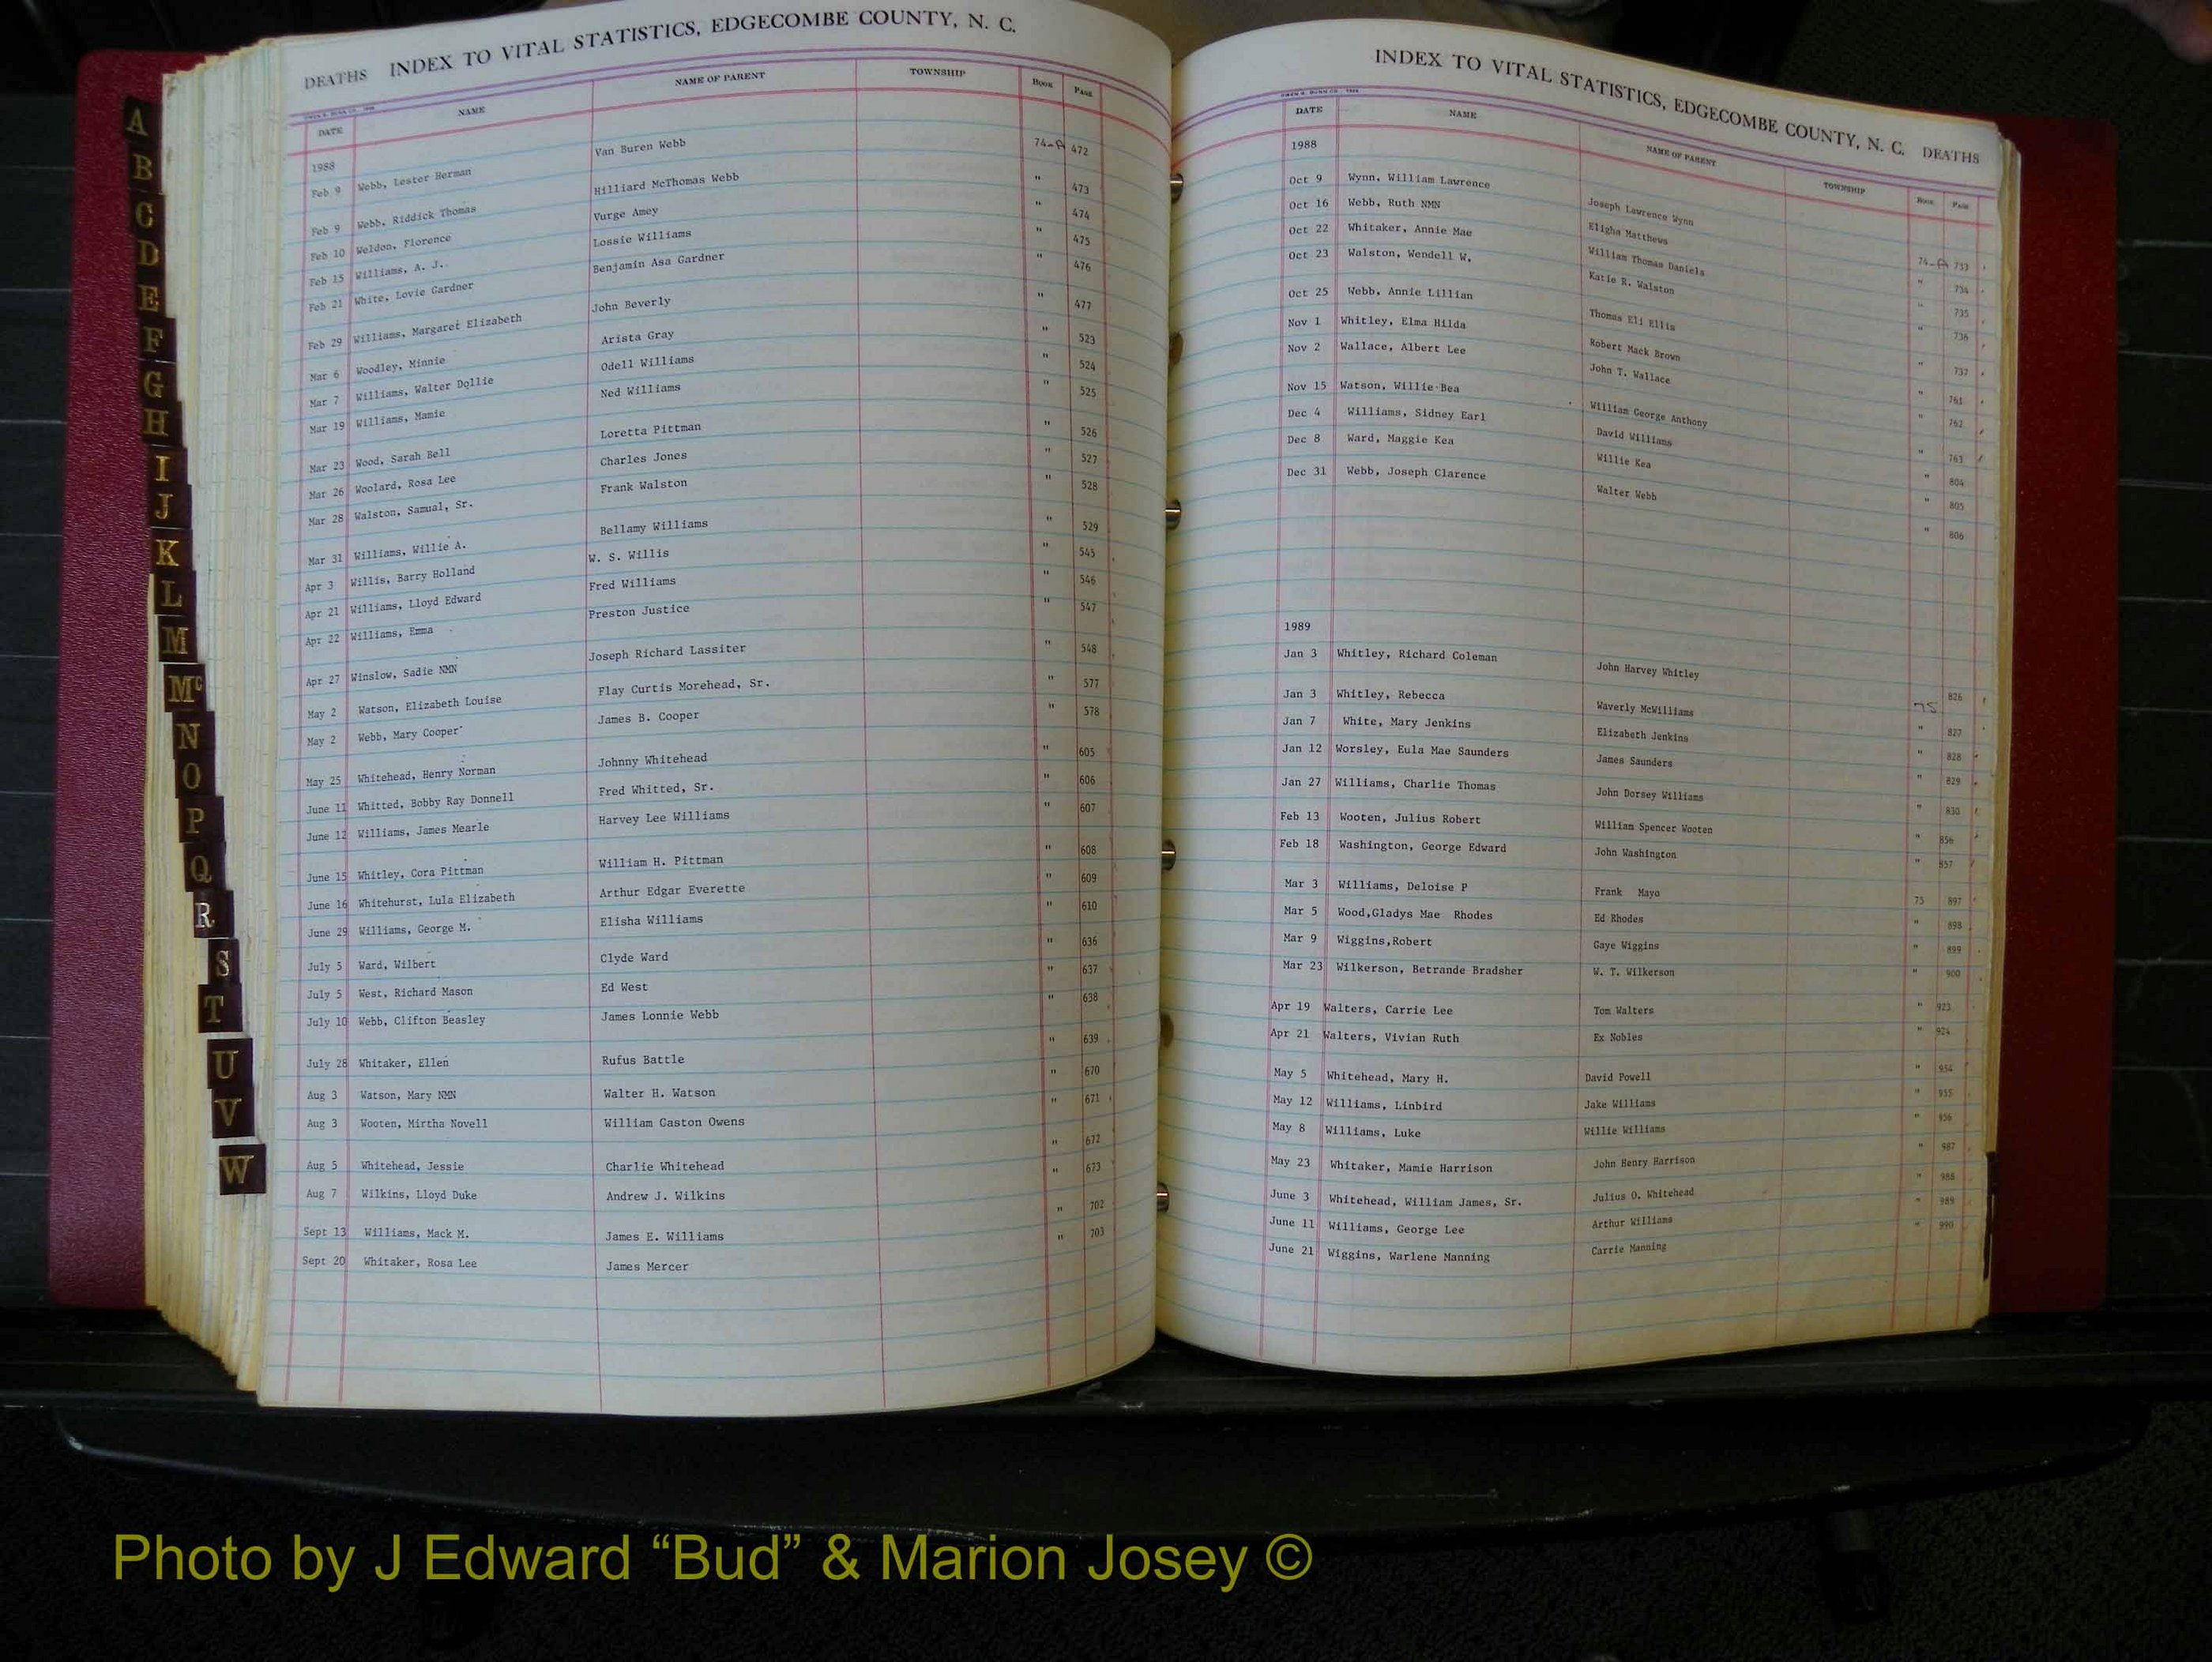 DEATHS INDEX TO VITAL STATISTICS, EDGECOMBE COUNTY, N. C.
DATE NAME NAME OF PARENT TOWNSHIP BOOK PAGE
1988
Feb 9 Webb, Lester Herman Van Buren Webb 74-A 472
Feb 9 Webb, Riddick Thomas Hilliard McThomas Webb " 473
Feb 10 Weldon, Florence Vurge Amey " 474
Feb 15 Williams, A. J. Lossie Williams " 475
Feb 21 White, Lovie Gardner Benjamin Asa Gardner " 476
Feb 29 Williams, Margaret Elizabeth John Beverly " 477
Mar 6 Woodley, Minnie Arista Gray " 523
Mar 7 Williams, Walter Dollie Odell Williams " 524
Mar 19 Williams, Mamie Ned Williams " 525
Mar 23 Wood, Sarah Bell Loretta Pittman " 526
Mar 26 Woolard, Rosa Lee Charles Jones " 527
Mar 28 Walston, Samual, Sr. Frank Walston " 528
Mar 31 Williams, Willie A. Bellamy Williams " 529
Apr 3 Willis, Barry Holland W. S. Willis " 545
Apr 21 Williams, Lloyd Edward Fred Williams " 546
Apr 22 Williams, Emma Preston Justice " 547
Apr 27 Winslow, Sadie NMN Joseph Richard Lassiter " 548
May 2 Watson, Elizabeth Louise Flay Curtis Morehead, Sr. " 577
May 2 Webb, Mary Cooper James B. Cooper " 578
May 25 Whitehead, Henry Norman Johnny Whitehead " 605
June 11 Whitted, Bobby Ray Donnell Fred Whitted, Sr. " 606
June 12 Williams, James Mearle Harvey Lee Williams " 607
June 15 Whitley, Cora Pittman William H. Pittman " 608
June 16 Whitehurst, Lula Elizabeth Arthur Edgar Everette " 609
June 29 Williams, George M. Elisha Williams " 610
July 5 Ward, Wilbert Clyde Ward " 636
July 5 West, Richard Mason Ed West " 637
July 10 Webb, Clifton Beasley James Lonnie Webb " 638
July 28 Whitaker, Ellen Rufus Battle " 639
Aug 3 Watson, Mary NMN Walter H. Watson " 670
Aug 3 Wooten, Mirtha Novell William Gaston Owens " 671
Aug 5 Whitehead, Jessie Charlie Whitehead " 672
Aug 7 Wilkins, Lloyd Duke Andrew J. Wilkins " 673
Sept 13 Williams, Mack M. James E. Williams " 702
Sept 20 Whitaker, Rosa Lee James Mercer " 703
INDEX TO VITAL STATISTICS, EDGECOMBE COUNTY, N. C. DEATHS
DATE NAME NAME OF PARENT TOWNSHIP BOOK PAGE
1988
Oct 9 Wynn, William Lawrence Joseph Lawrence Wynn 74-A 733
Oct 16 Webb, Ruth NMN Eligha Matthews " 734
Oct 22 Whitaker, Annie Mae William Thomas Daniels " 735
Oct 23 Walston, Wendell W. Katie R. Walston " 736
Oct 25 Webb, Annie Lillian Thomas Eli Ellis " 737
Nov 1 Whitley, Elma Hilda Robert Mack Brown " 761
Nov 2 Wallace, Albert Lee John T. Wallace " 762
Nov 15 Watson, Willie Bea William George Anthony " 763
Dec 4 Williams, Sidney Earl David Williams " 804
Dec 8 Ward, Maggie Kea Willie Kea " 805
Dec 31 Webb, Joseph Clarence Walter Webb " 806
1989
Jan 3 Whitley, Richard Coleman John Harvey Whitley 75 826
Jan 3 Whitley, Rebecca Waverly McWilliams " 827
Jan 7 White, Mary Jenkins Elizabeth Jenkins " 828
Jan 12 Worsley, Eula Mae Saunders James Saunders " 829
Jan 27 Williams, Charlie Thomas John Dorsey Williams " 830
Feb 13 Wooten, Julius Robert William Spencer Wooten " 856
Feb 18 Washington, George Edward John Washington " 857
Mar 3 Williams, Deloise P Frank Mayo 75 897
Mar 5 Wood,Gladys Mae Rhodes Ed Rhodes " 898
Mar 9 Wiggins,Robert Gaye Wiggins " 899
Mar 23 Wilkerson, Betrande Bradsher W. T. Wilkerson " 900
Apr 19 Walters, Carrie Lee Tom Walters " 923
Apr 21 Walters, Vivian Ruth Ex Nobles " 924
May 5 Whitehead, Mary H. David Powell " 954
May 12 Williams, Linbird Jake Williams " 955
May 8 Williams, Luke Willie Williams " 956
May 23 Whitaker, Mamie Harrison John Henry Harrison " 987
June 3 Whitehead, William James, Sr. Julius O. Whitehead " 988
June 11 Williams, George Lee Arthur Williams " 989
June 21 Wiggins, Warlene Manning Carrie Manning " 990
A
B
C
D
E
F
G
H
I
J
K
L
M
Mc
N
O
P
Q
R
S
T
U
V
W
Photo by J Edward “Bud” & Marion Josey ©